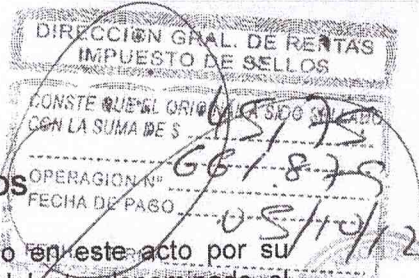 DIRECCIÓN GRAL. DE RENTAS
IMPUESTO DE SELLOS
CONSTE QUE EL ORIGINAL HA SIDO SELLADO
CON LA SUMA DE $ 45,75
OPERACION Nº 661.875
OS
FECHA DE PAGO 05/10/12
o en este acto por su